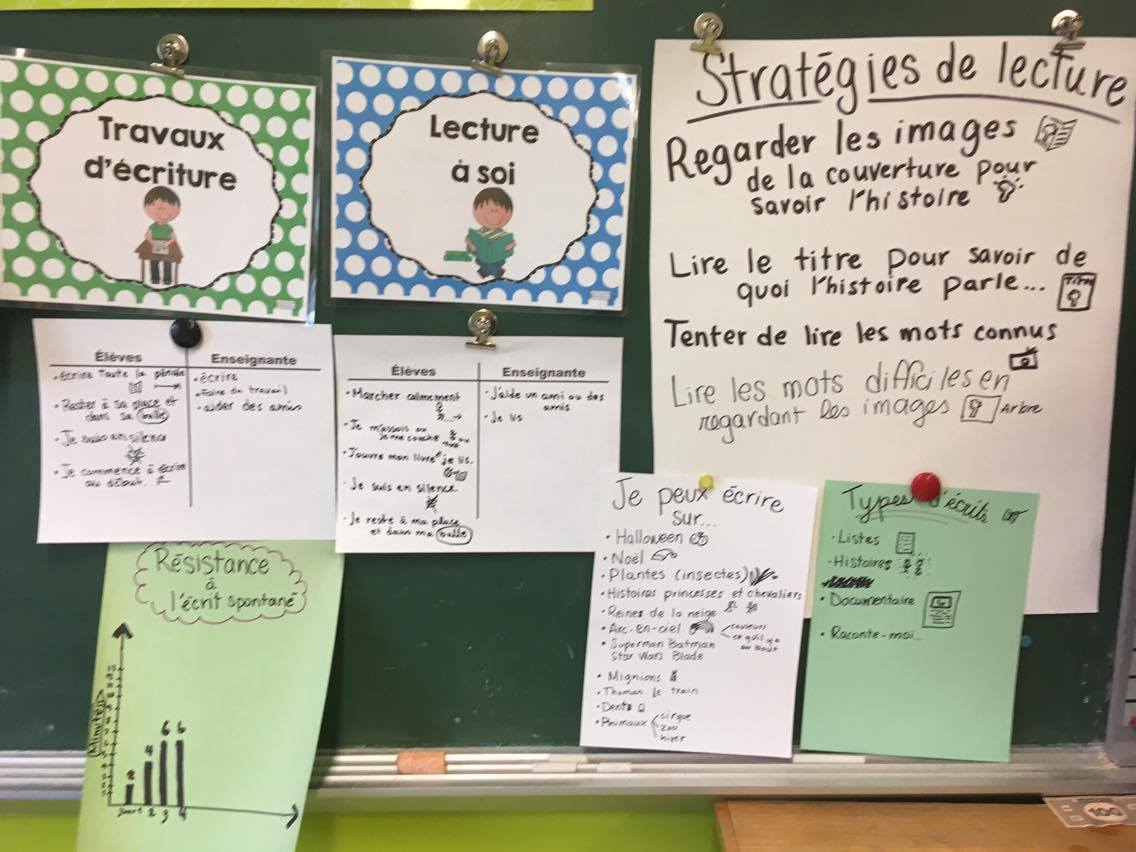 Travaux
d'écriture
Lecture
à soi
Stratégies de lecture
Regarder les images
de la couverture pour
savoir l'histoire
Lire le titre pour savoir de
quoi l'histoire parle...
Titre
Tenter de lire les mots connus
Lire les mots difficiles en
regardant les images
Arbre
Élèves
Enseignante
• écrire toute la période
• Rester à sa place et
dans sa bulle
• Je suis en silence
• Je commence à écrire
au début.
• écrire
• Faire du travail
• aider des amis
Élèves
Enseignante
• Marcher calmement
• Je m'assois ou
je me couche
• J'ouvre mon livre et je lis.
• Je suis en silence.
• Je reste à ma place
et dans ma bulle
• J'aide un ami ou des
amis
• Je lis
Résistance
à
l'écrit spontané
Minutes
2
4
6
6
Jour 1
2
3
4
Je peux écrire
sur...
• Halloween
• Noël
• Plantes (insectes)
• Histoires princesses et chevaliers
• Reines de la neige
• Arc-en-ciel
couleurs
ce qu'il y a
au bout
• Superman Batman
Star Wars Blade
• Mignions
• Thomas le train
• Dents
• Animaux
cirque
zoo
hiver
Types d'écrits
• Listes
• Histoires
• Documentaire
• Raconte-moi...
100